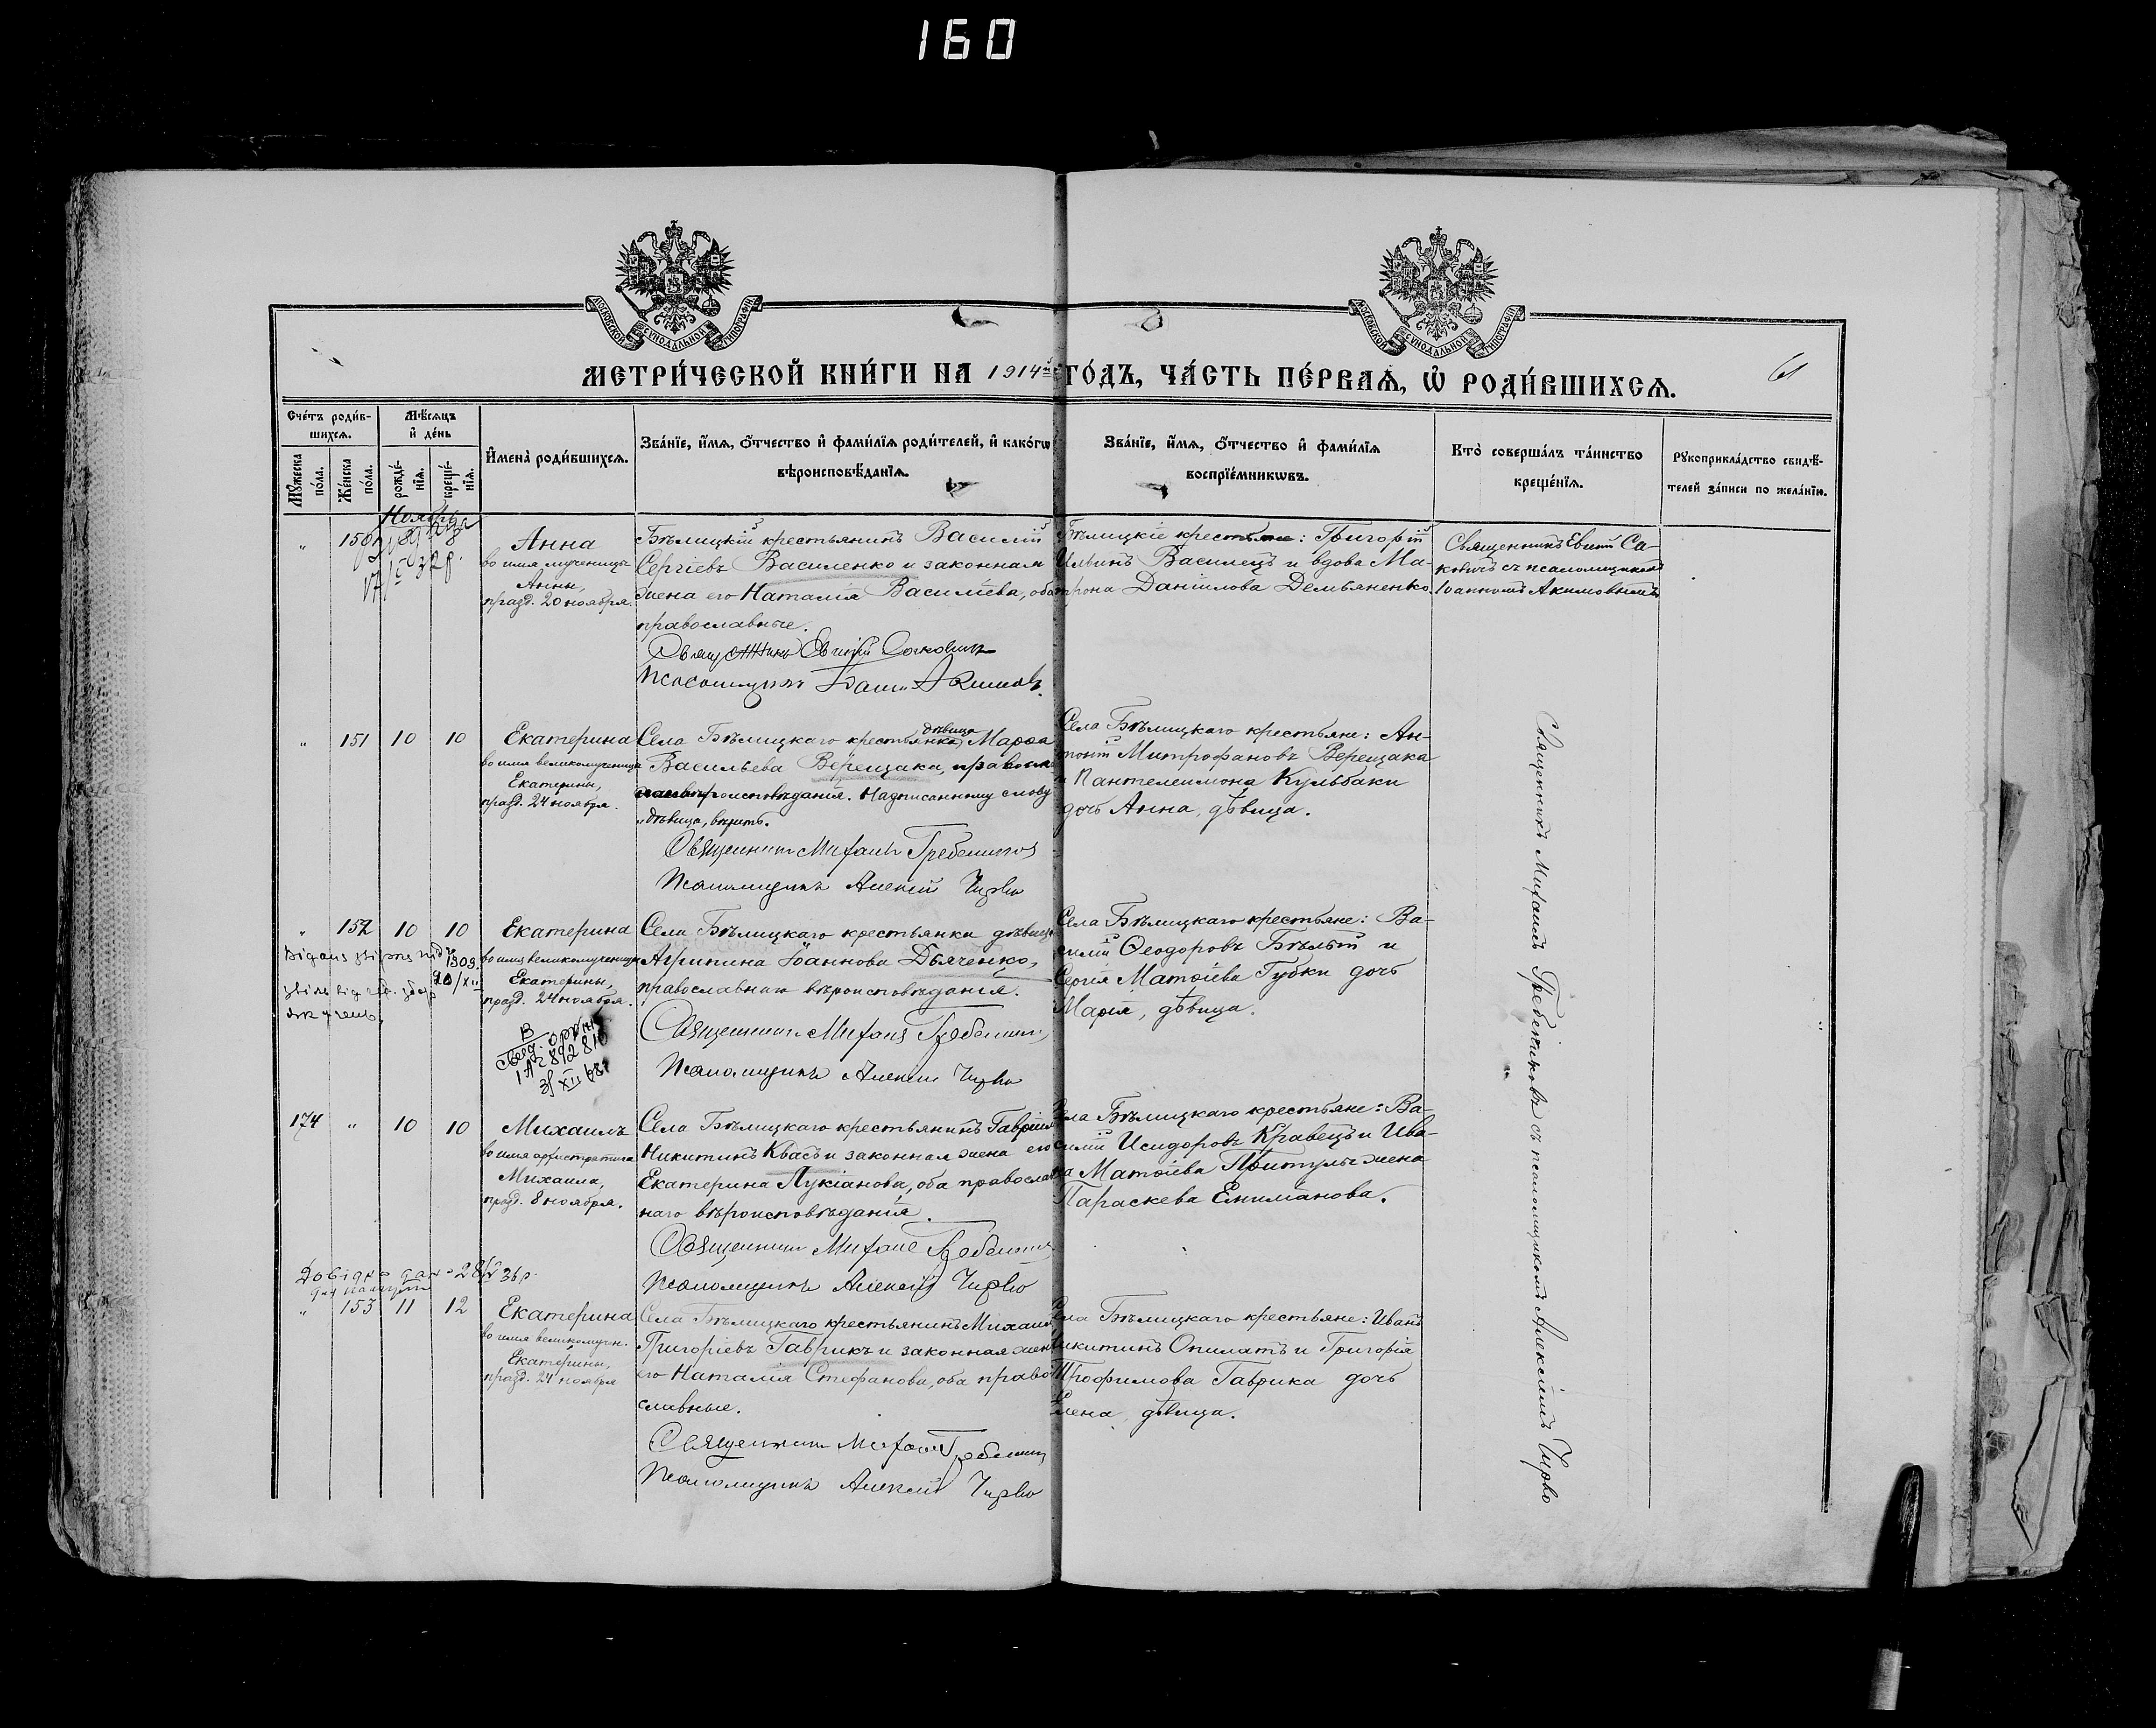 160
МОСКОВСКОЙ СѴНОДАЛЬНОЙ ТИПОГРАФІИ
МОСКОВСКОЙ СѴНОДАЛЬНОЙ ТИПОГРАФІИ
МЕТРИ́ЧЕСКОЙ КНИ́ГИ НА 1914й ГО́ДЪ, ЧА́СТЬ ПЕ́РВАѦ, Ѡ РОДИ́ВШИХСѦ.
61
Сче́тъ роди́в-
шихсѧ.
Мѣ́сѧцъ
и҆ де́нь
Мꙋ́жеска
по́ла.
Же́нска
по́ла.
рожде́-
нїѧ.
креще́-
нїѧ.
И҆мена̀ роди́вшихсѧ.
Зва́нїе, и҆́мѧ, ѻ҆́тчество и҆ фами́лїѧ роди́телей, и҆ како́гѡ
вѣроисповѣ́данїѧ.
Зва́нїе, и҆́мѧ, ѻ҆́тчество и҆ фами́лїѧ
воспрїе́мникѡвъ.
Кто̀ соверша́лъ та́инство
креще́нїѧ.
Рꙋкоприкла́дство свидѣ́-
телей за́писи по жела́нїю.
Ноябрь
" 150
Анна
во имя мученицы
Анны,
празд. 20 ноября.
Бѣлицкій крестьянинъ Василій
Сергіевъ Василенко и законная
жена его Наталія Василіева, оба
православные.
Священникъ Евгеній Сакович
Псаломщикъ Іоан. Акимовъ.
Бѣлицкіе крестьяне: Григорій
Ильинъ Василецъ и вдова Ма-
трона Даніилова Демьяненко.
Священникъ Евгеній Са-
ковичъ съ псаломщикомъ
Іоанномъ Акимовымъ
" 151 10 10
Екатерина
во имя великомученицы
Екатерины,
празд. 24 ноября.
дѣвица
Села Бѣлицкаго крестьянка Марѳа
Васильева Верещака, православ
вѣроисповѣданія. Надписанному слову
„дѣвица, вѣрить.
Священник Михаил Гребеников
Псаломщикъ Алексій Чирво
Села Бѣлицкаго крестьяне: Ан-
тоній Митрофановъ Верещака
и Пантелеимона Кульбаки
дочь Анна, дѣвица.
" 152 10 10
20/XII
Екатерина
во имя великомученицы
Екатерины,
празд. 24 ноября.
В
31 XII
Села Бѣлицкаго крестьянка дѣвица
Агрипина Іоаннова Дьяченко,
православнаго вѣроисповѣданія.
Священник Михаил Гребеников
Псаломщикъ Алексій Чирво
Села Бѣлицкаго крестьяне: Ва-
силій Ѳеодоровъ Бѣлый и
Сергія Матѳіева Губки дочь
Марія, дѣвица.
174 " 10 10
Михаилъ
во имя архистратига
Михаила,
празд. 8 ноября.
Села Бѣлицкаго крестьянинъ Гавріилъ
Никитинъ Квасъ и законная жена его
Екатерина Лукіанова, оба православ
наго вѣроисповѣданія.
Священник Михаил Гребеников
Псаломщикъ Алексій Чирво
Села Бѣлицкаго крестьяне: Ва-
силій Исидоровъ Кравецъ и Ива-
на Матѳіева Притулы жена
Параскева Епифанова.
Довідка
" 153 11 12
Екатерина
во имя великомучен.
Екатерины,
празд. 24 ноября
Села Бѣлицкаго крестьянинъ Михаил
Григоріевъ Гаврикъ и законная жена
его Наталія Стефанова, оба право
славные.
Священник Михаил Гребеников
Псаломщикъ Алексій Чирво
Села Бѣлицкаго крестьяне: Иванъ
Никитинъ Опилатъ и Григорія
Трофимова Гаврика дочь
Елена, дѣвица.
Священникъ Михаилъ Гребениковъ съ псаломщикомъ Алексіемъ Чирво